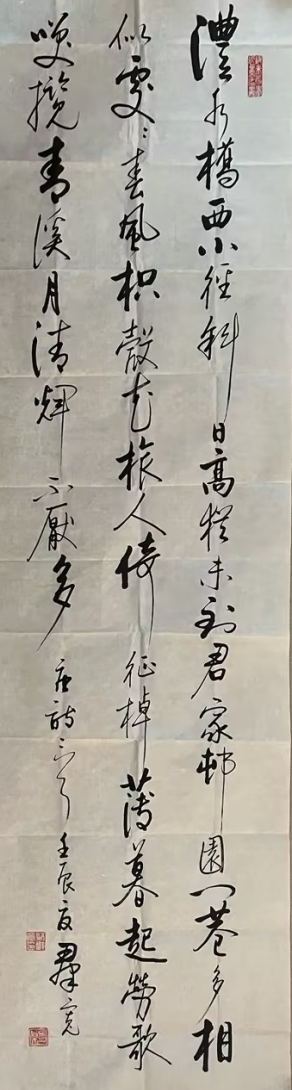 澧水橋西小徑斜日高猶未到君家邨園門巷多相
似處〻春風枳殼花旅人倚征棹薄暮起勞歌
笑攬青溪月清輝不厭多
唐詩二首壬辰夏